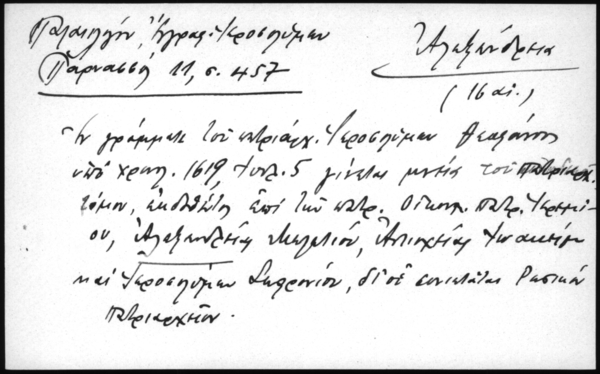 Παλαιολόγου, Ἔγγραφ. Ἱεροσολύμων
Παρνασσῷ 11, σ. 457
Ἀλεξάνδρεια
(16 αἰ.)
Ἐν γράμματι τοῦ πατριάρχ. Ἱεροσολύμων Θεοφάνους
ὑπὸ χρον. 1619 Ἰουλ. 5 γίνεται μνεία τοῦ πατριαρχ.
τόμου, ἐκδοθέντος ἐπὶ τῶν πατρ. Οἰκουμ. πατρ. Ἱερεμί-
ου, Ἀλεξανδρείας Μελετίου, Ἀντιοχείας Ἰωακεὶμ
καὶ Ἱεροσολύμων Σωφρονίου, δι' οὗ συνιστᾶται Ρωσικόν
πατριαρχεῖον.